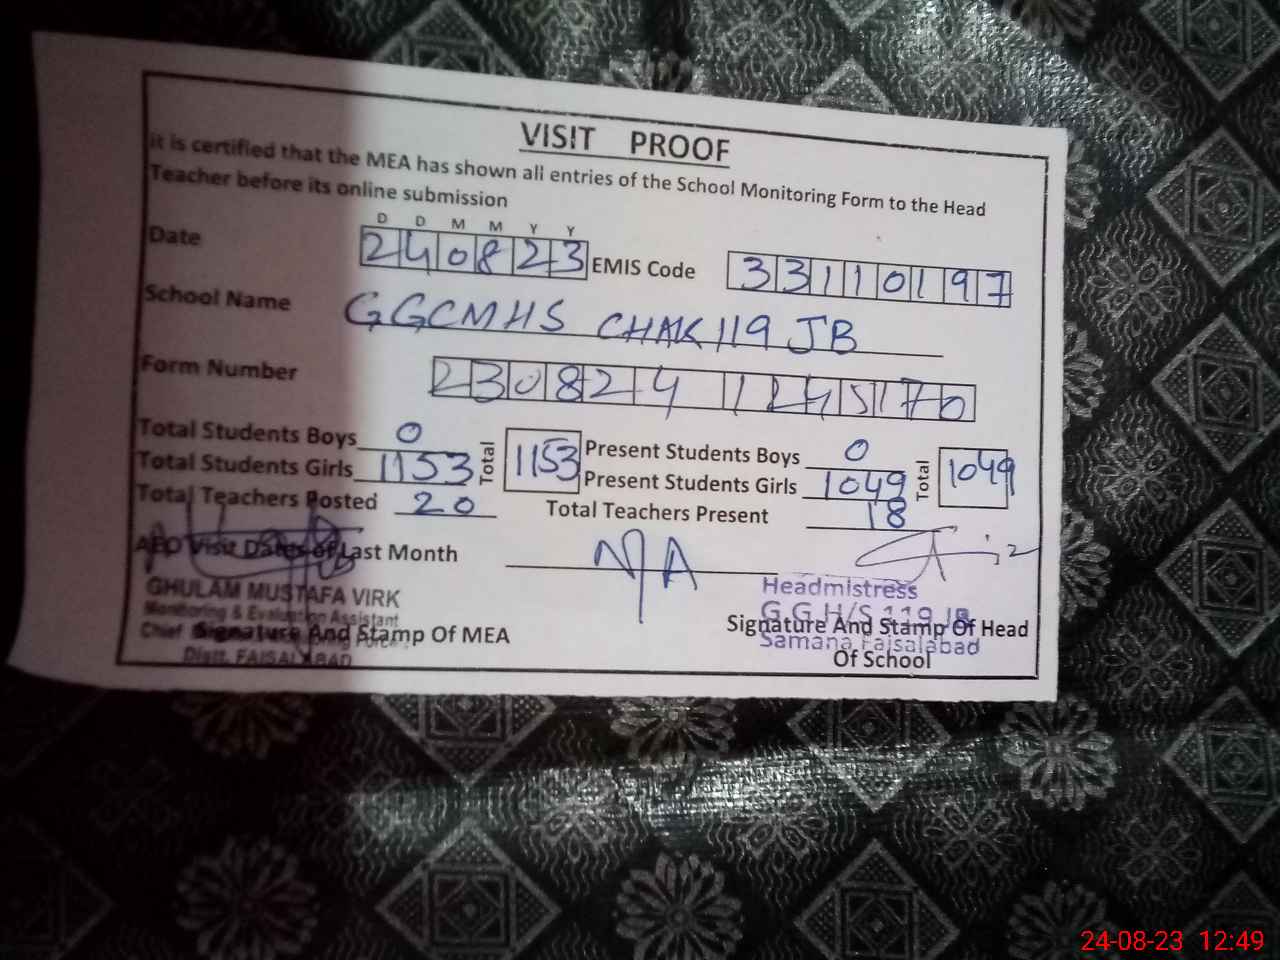 VISIT PROOF
it is certified that the MEA has shown all entries of the School Monitoring Form to the Head
Teacher before its online submission
D D M M Y Y
Date 240823 EMIS Code 33110197
School Name GGCMHS CHAK 119 JB
Form Number 230824 1245170
Total Students Boys 0 Total 1153 Present Students Boys 0 Total 1049
Total Students Girls 1153 Present Students Girls 1049
Total Teachers Posted 20 Total Teachers Present 18
AEO Visit Dates of Last Month N/A
GHULAM MUSTAFA VIRK
Monitoring & Evaluation Assistant
Chief
Distt. FAISALABAD
Signature And Stamp Of MEA
Headmistress
G.G.H/S 119 JB
Samana Faisalabad
Signature And Stamp Of Head
Of School
24-08-23 12:49